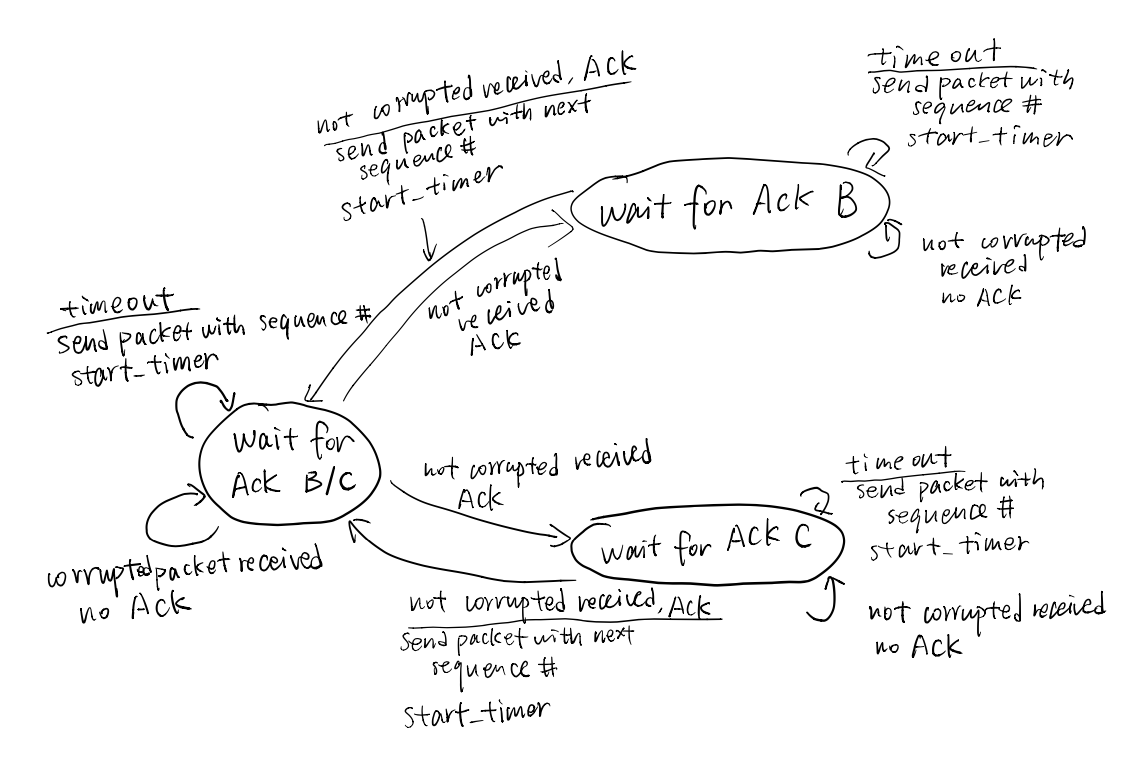 not corrupted received, Ack
send packet with next
sequence #
start_timer
time out
send packet with
sequence #
start_timer
wait for Ack B
not corrupted
received
no Ack
not corrupted
received
Ack
timeout
send packet with sequence #
start_timer
wait for
Ack B/C
corrupted packet received
no Ack
not corrupted received
Ack
time out
send packet with
sequence #
start_timer
wait for Ack C
not corrupted received
no Ack
not corrupted received, Ack
send packet with next
sequence #
start_timer